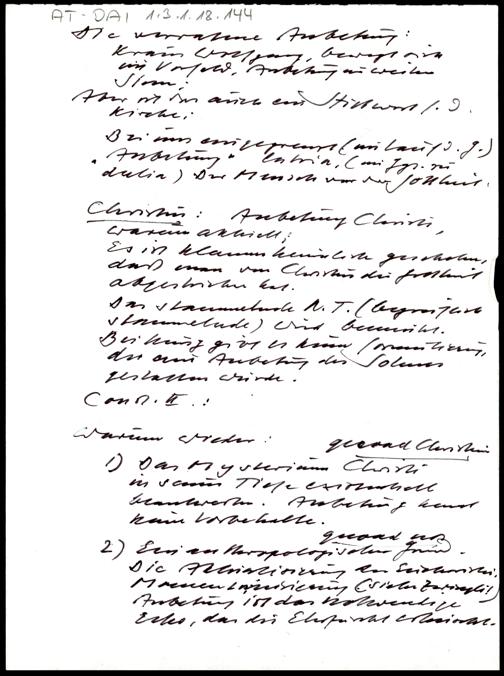 AT-DAI 1.3.1.18.144
Die verratene Anbetung:
Kraus Wolfgang, bewegt sich
im Vorfeld, Anbetung im weiten
Sinn;
Aber ist das auch ein Stichwort f. d.
Kirche;
Bei uns eingegrenzt (
"Anbetung" latria, (
dulia) Der Mensch vor der Gottheit.
Christus: Anbetung Christi,
warum aktuell;
Es ist klammheimlich geschehen,
daß man von Christus die Gottheit
abgestrichen hat.
Das stammelnde N.T. (begreiflich
stammelnde) wird bemüht.
Bei Küng gibt es keine Formulierung,
die eine Anbetung des Sohnes
gestatten würde.
Const. II.:
Warum wieder: gerade Christus
1) Das Mysterium Christi
in seiner Tiefe existentiell
beantworten. Anbetung kennt
keine Vorbehalte.
2) Ein anthropologischer Grund.
Die der Eucharistie.
(siehe Zwingli)
Anbetung ist das notwendige
Echo, das die Ehrfurcht